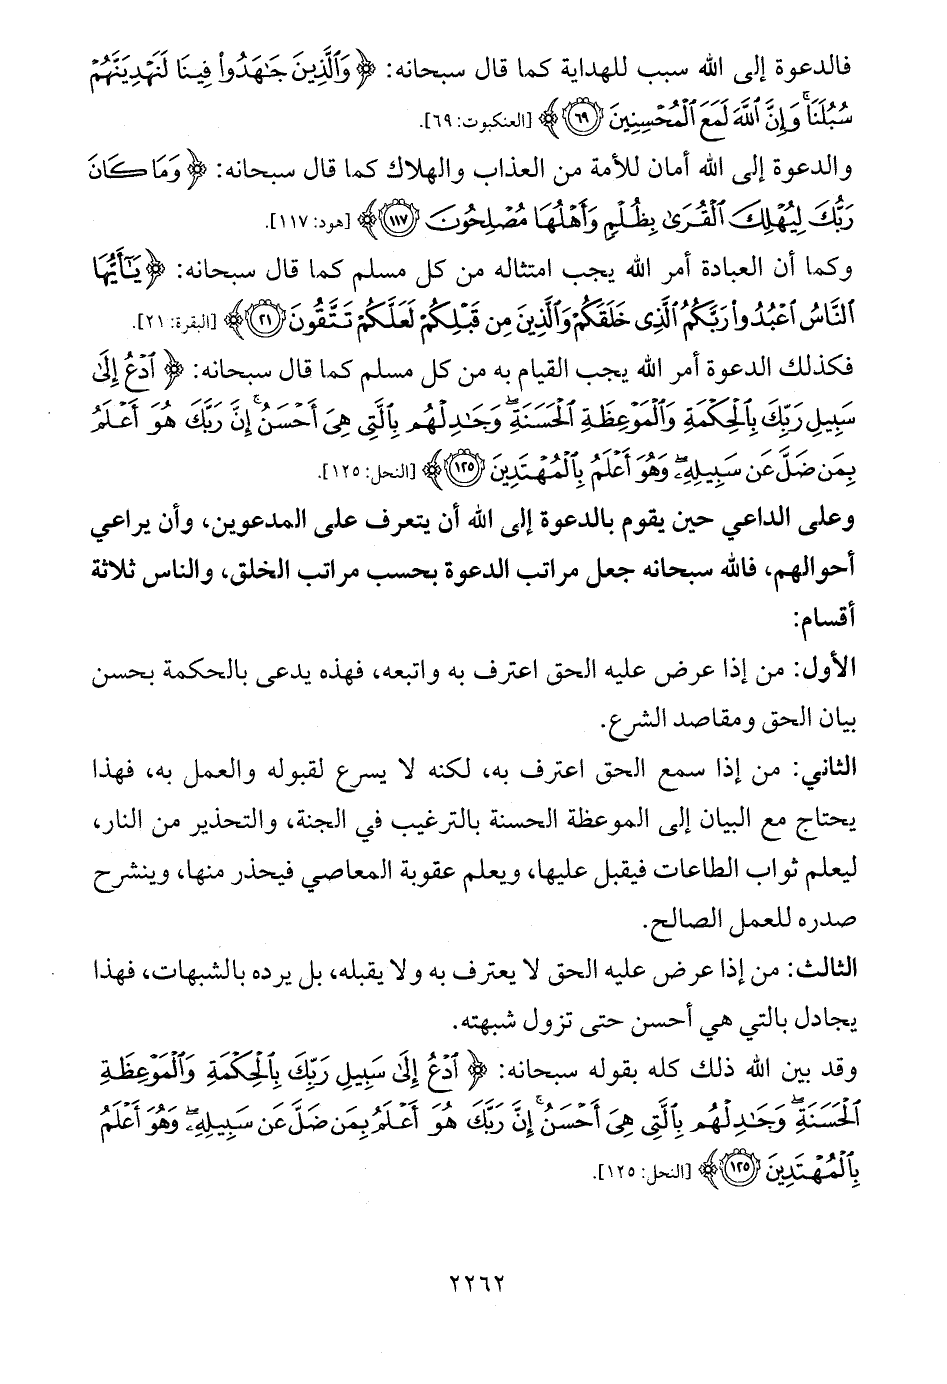 فالدعوة إلى الله سبب للهداية كما قال سبحانه: ﴿ وَٱلَّذِينَ جَٰهَدُوا۟ فِينَا لَنَهْدِيَنَّهُمْ
سُبُلَنَا ۚ وَإِنَّ ٱللَّهَ لَمَعَ ٱلْمُحْسِنِينَ ٦٩ ﴾ [العنكبوت: ٦٩].
والدعوة إلى الله أمان للأمة من العذاب والهلاك كما قال سبحانه: ﴿ وَمَا كَانَ
رَبُّكَ لِيُهْلِكَ ٱلْقُرَىٰ بِظُلْمٍ وَأَهْلُهَا مُصْلِحُونَ ١١٧ ﴾ [هود: ١١٧].
وكما أن العبادة أمر الله يجب امتثاله من كل مسلم كما قال سبحانه: ﴿ يَٰٓأَيُّهَا
ٱلنَّاسُ ٱعْبُدُوا۟ رَبَّكُمُ ٱلَّذِى خَلَقَكُمْ وَٱلَّذِينَ مِن قَبْلِكُمْ لَعَلَّكُمْ تَتَّقُونَ ٢١ ﴾ [البقرة: ٢١].
فكذلك الدعوة أمر الله يجب القيام به من كل مسلم كما قال سبحانه: ﴿ ٱدْعُ إِلَىٰ
سَبِيلِ رَبِّكَ بِٱلْحِكْمَةِ وَٱلْمَوْعِظَةِ ٱلْحَسَنَةِ ۖ وَجَٰدِلْهُم بِٱلَّتِى هِىَ أَحْسَنُ ۚ إِنَّ رَبَّكَ هُوَ أَعْلَمُ
بِمَن ضَلَّ عَن سَبِيلِهِۦ ۖ وَهُوَ أَعْلَمُ بِٱلْمُهْتَدِينَ ١٢٥ ﴾ [النحل: ١٢٥].
وعلى الداعي حين يقوم بالدعوة إلى الله أن يتعرف على المدعوين، وأن يراعي
أحوالهم، فالله سبحانه جعل مراتب الدعوة بحسب مراتب الخلق، والناس ثلاثة
أقسام:
الأول: من إذا عرض عليه الحق اعترف به واتبعه، فهذه يدعى بالحكمة بحسن
بيان الحق ومقاصد الشرع.
الثاني: من إذا سمع الحق اعترف به، لكنه لا يسرع لقبوله والعمل به، فهذا
يحتاج مع البيان إلى الموعظة الحسنة بالترغيب في الجنة، والتحذير من النار،
ليعلم ثواب الطاعات فيقبل عليها، ويعلم عقوبة المعاصي فيحذر منها، وينشرح
صدره للعمل الصالح.
الثالث: من إذا عرض عليه الحق لا يعترف به ولا يقبله، بل يرده بالشبهات، فهذا
يجادل بالتي هي أحسن حتى تزول شبهته.
وقد بين الله ذلك كله بقوله سبحانه: ﴿ ٱدْعُ إِلَىٰ سَبِيلِ رَبِّكَ بِٱلْحِكْمَةِ وَٱلْمَوْعِظَةِ
ٱلْحَسَنَةِ ۖ وَجَٰدِلْهُم بِٱلَّتِى هِىَ أَحْسَنُ ۚ إِنَّ رَبَّكَ هُوَ أَعْلَمُ بِمَن ضَلَّ عَن سَبِيلِهِۦ ۖ وَهُوَ أَعْلَمُ
بِٱلْمُهْتَدِينَ ١٢٥ ﴾ [النحل: ١٢٥].
٢٢٦٢